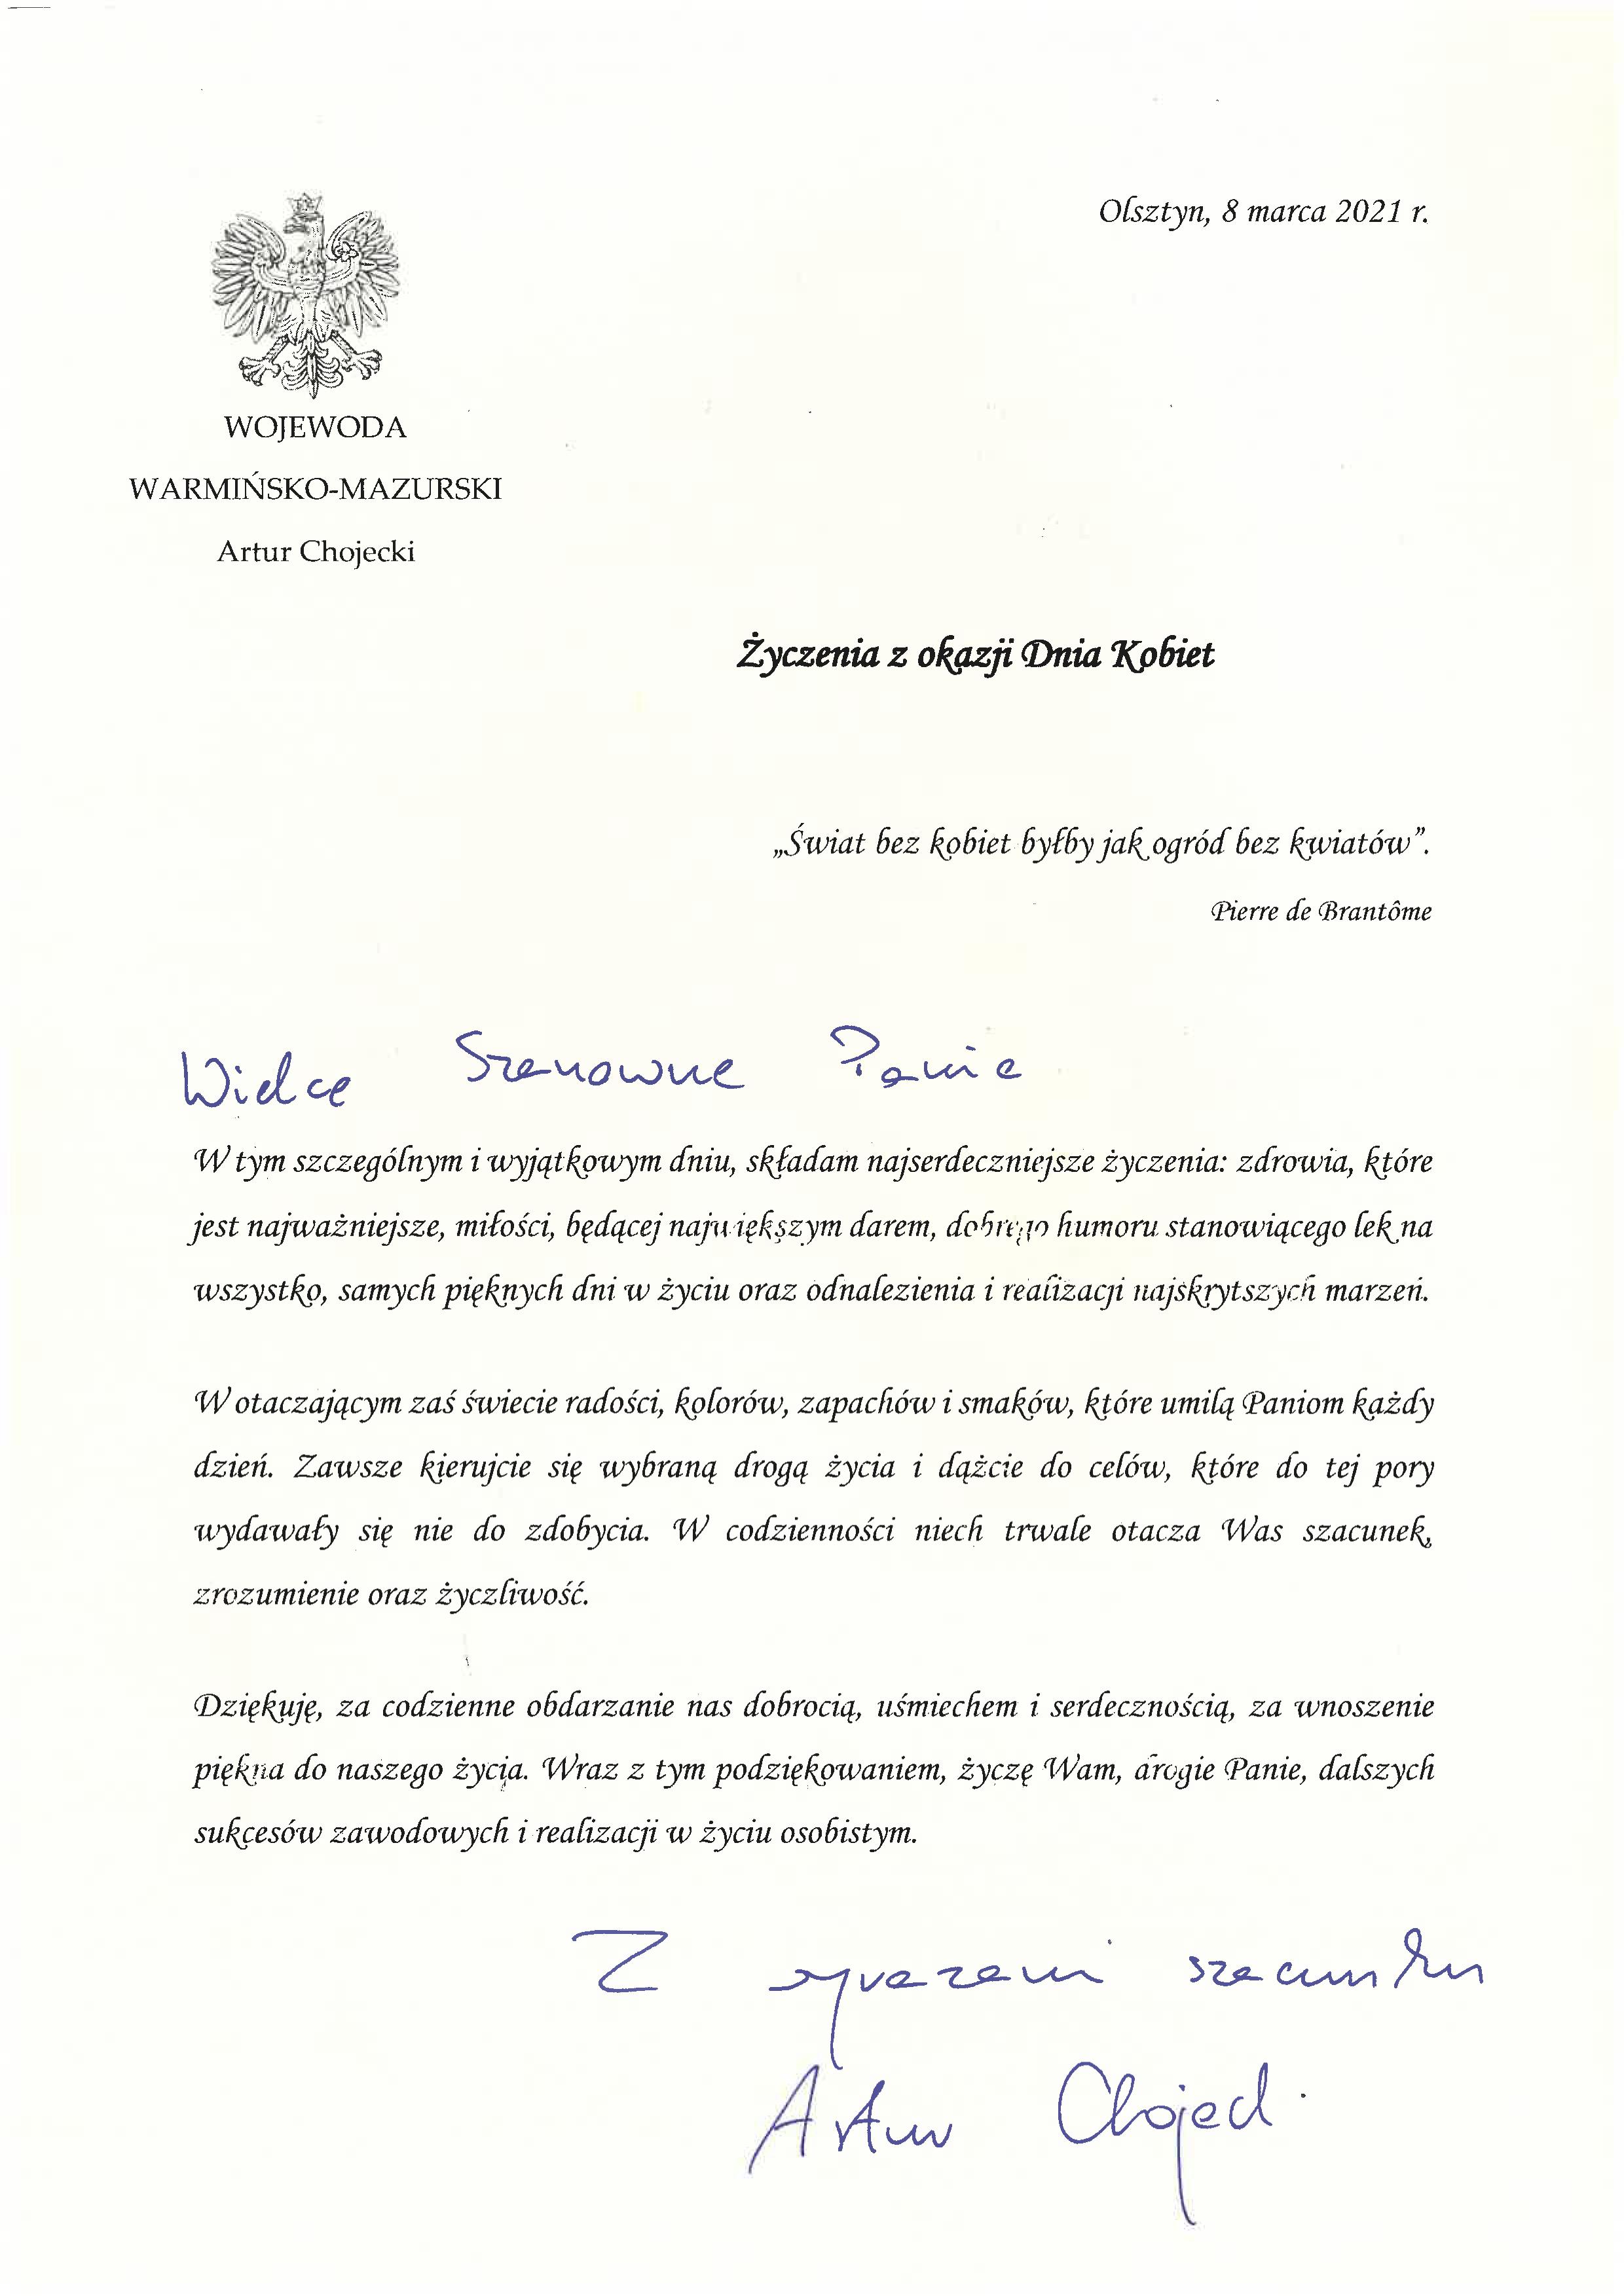 Olsztyn, 8 marca 2021 r.
WOJEWODA
WARMIŃSKO-MAZURSKI
Artur Chojecki
Życzenia z okazji Dnia Kobiet
„Świat bez kobiet byłby jak ogród bez kwiatów”.
Pierre de Brantôme
Wielce Szanowne Panie
W tym szczególnym i wyjątkowym dniu, składam najserdeczniejsze życzenia: zdrowia, które
jest najważniejsze, miłości, będącej największym darem, dobrego humoru stanowiącego lek na
wszystko, samych pięknych dni w życiu oraz odnalezienia i realizacji najskrytszych marzeń.
W otaczającym zaś świecie radości, kolorów, zapachów i smaków, które umilą Paniom każdy
dzień. Zawsze kierujcie się wybraną drogą życia i dążcie do celów, które do tej pory
wydawały się nie do zdobycia. W codzienności niech trwale otacza Was szacunek,
zrozumienie oraz życzliwość.
Dziękuję, za codzienne obdarzanie nas dobrocią, uśmiechem i serdecznością, za wnoszenie
piękna do naszego życia. Wraz z tym podziękowaniem, życzę Wam, drogie Panie, dalszych
sukcesów zawodowych i realizacji w życiu osobistym.
Z wyrazami szacunku
Artur Chojecki